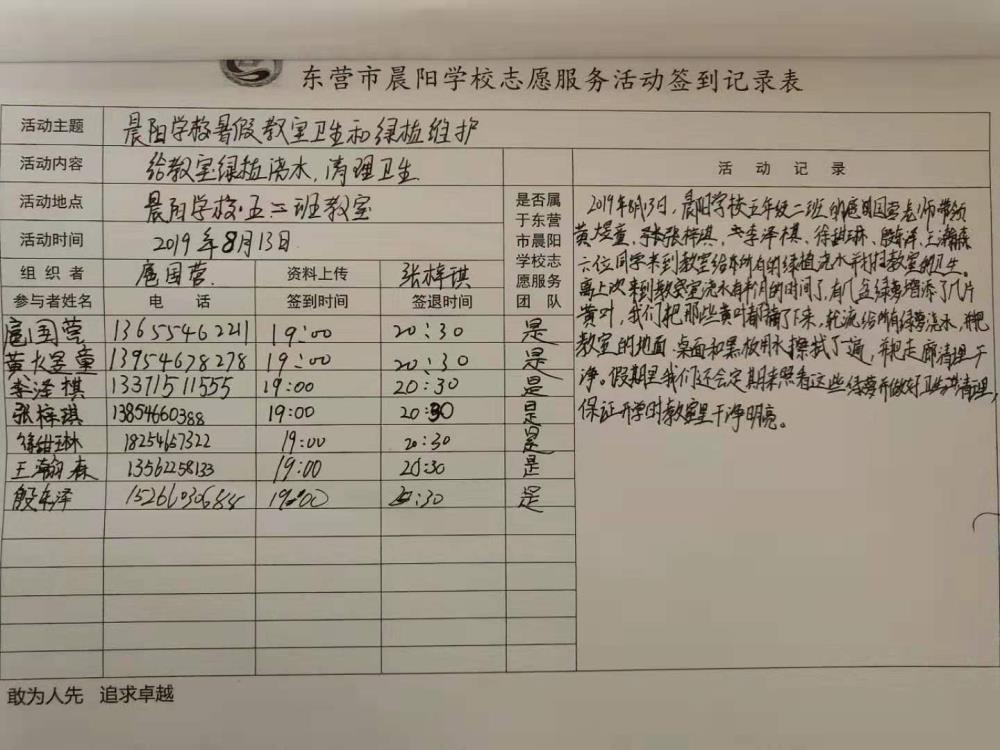 东营市晨阳学校志愿服务活动签到记录表
活动主题 晨阳学校暑假教室卫生和绿植维护
活动内容 给教室绿植浇水,清理卫生
活动地点 晨阳学校·五二班教室
活动时间 2019年8月13日
组织者 扈国营 资料上传 张梓琪
参与者姓名 电话 签到时间 签退时间 是否属于东营市晨阳学校志愿服务团队
扈国营 13655462211 19:00 20:30 是
黄煜童 13954678278 19:00 20:30 是
李泽棋 13371511555 19:00 20:30 是
张梓琪 13854660388 19:00 20:30 是
徐甜琳 18254657322 19:00 20:30 是
王瀚森 13562258133 19:00 20:30 是
殷东泽 15266030684 19:00 20:30 是
活动记录
2019年8月13日,晨阳学校五年级二班的扈国营老师带领
黄煜童,张梓琪,李泽棋,徐甜琳,殷东泽,王瀚森
六位同学来到教室给所有的绿植浇水并打扫教室的卫生。
离上次来到教室浇水有半个月的时间了,有几盆绿萝增添了几片
黄叶,我们把那些黄叶都摘了下来,轮流给所有绿萝浇水,并把
教室的地面、桌面和黑板用水擦拭了一遍,并把走廊清理干
净。假期里我们还会定期来照看这些绿萝并做好卫生清理,
保证开学时教室里干净明亮。
敢为人先 追求卓越